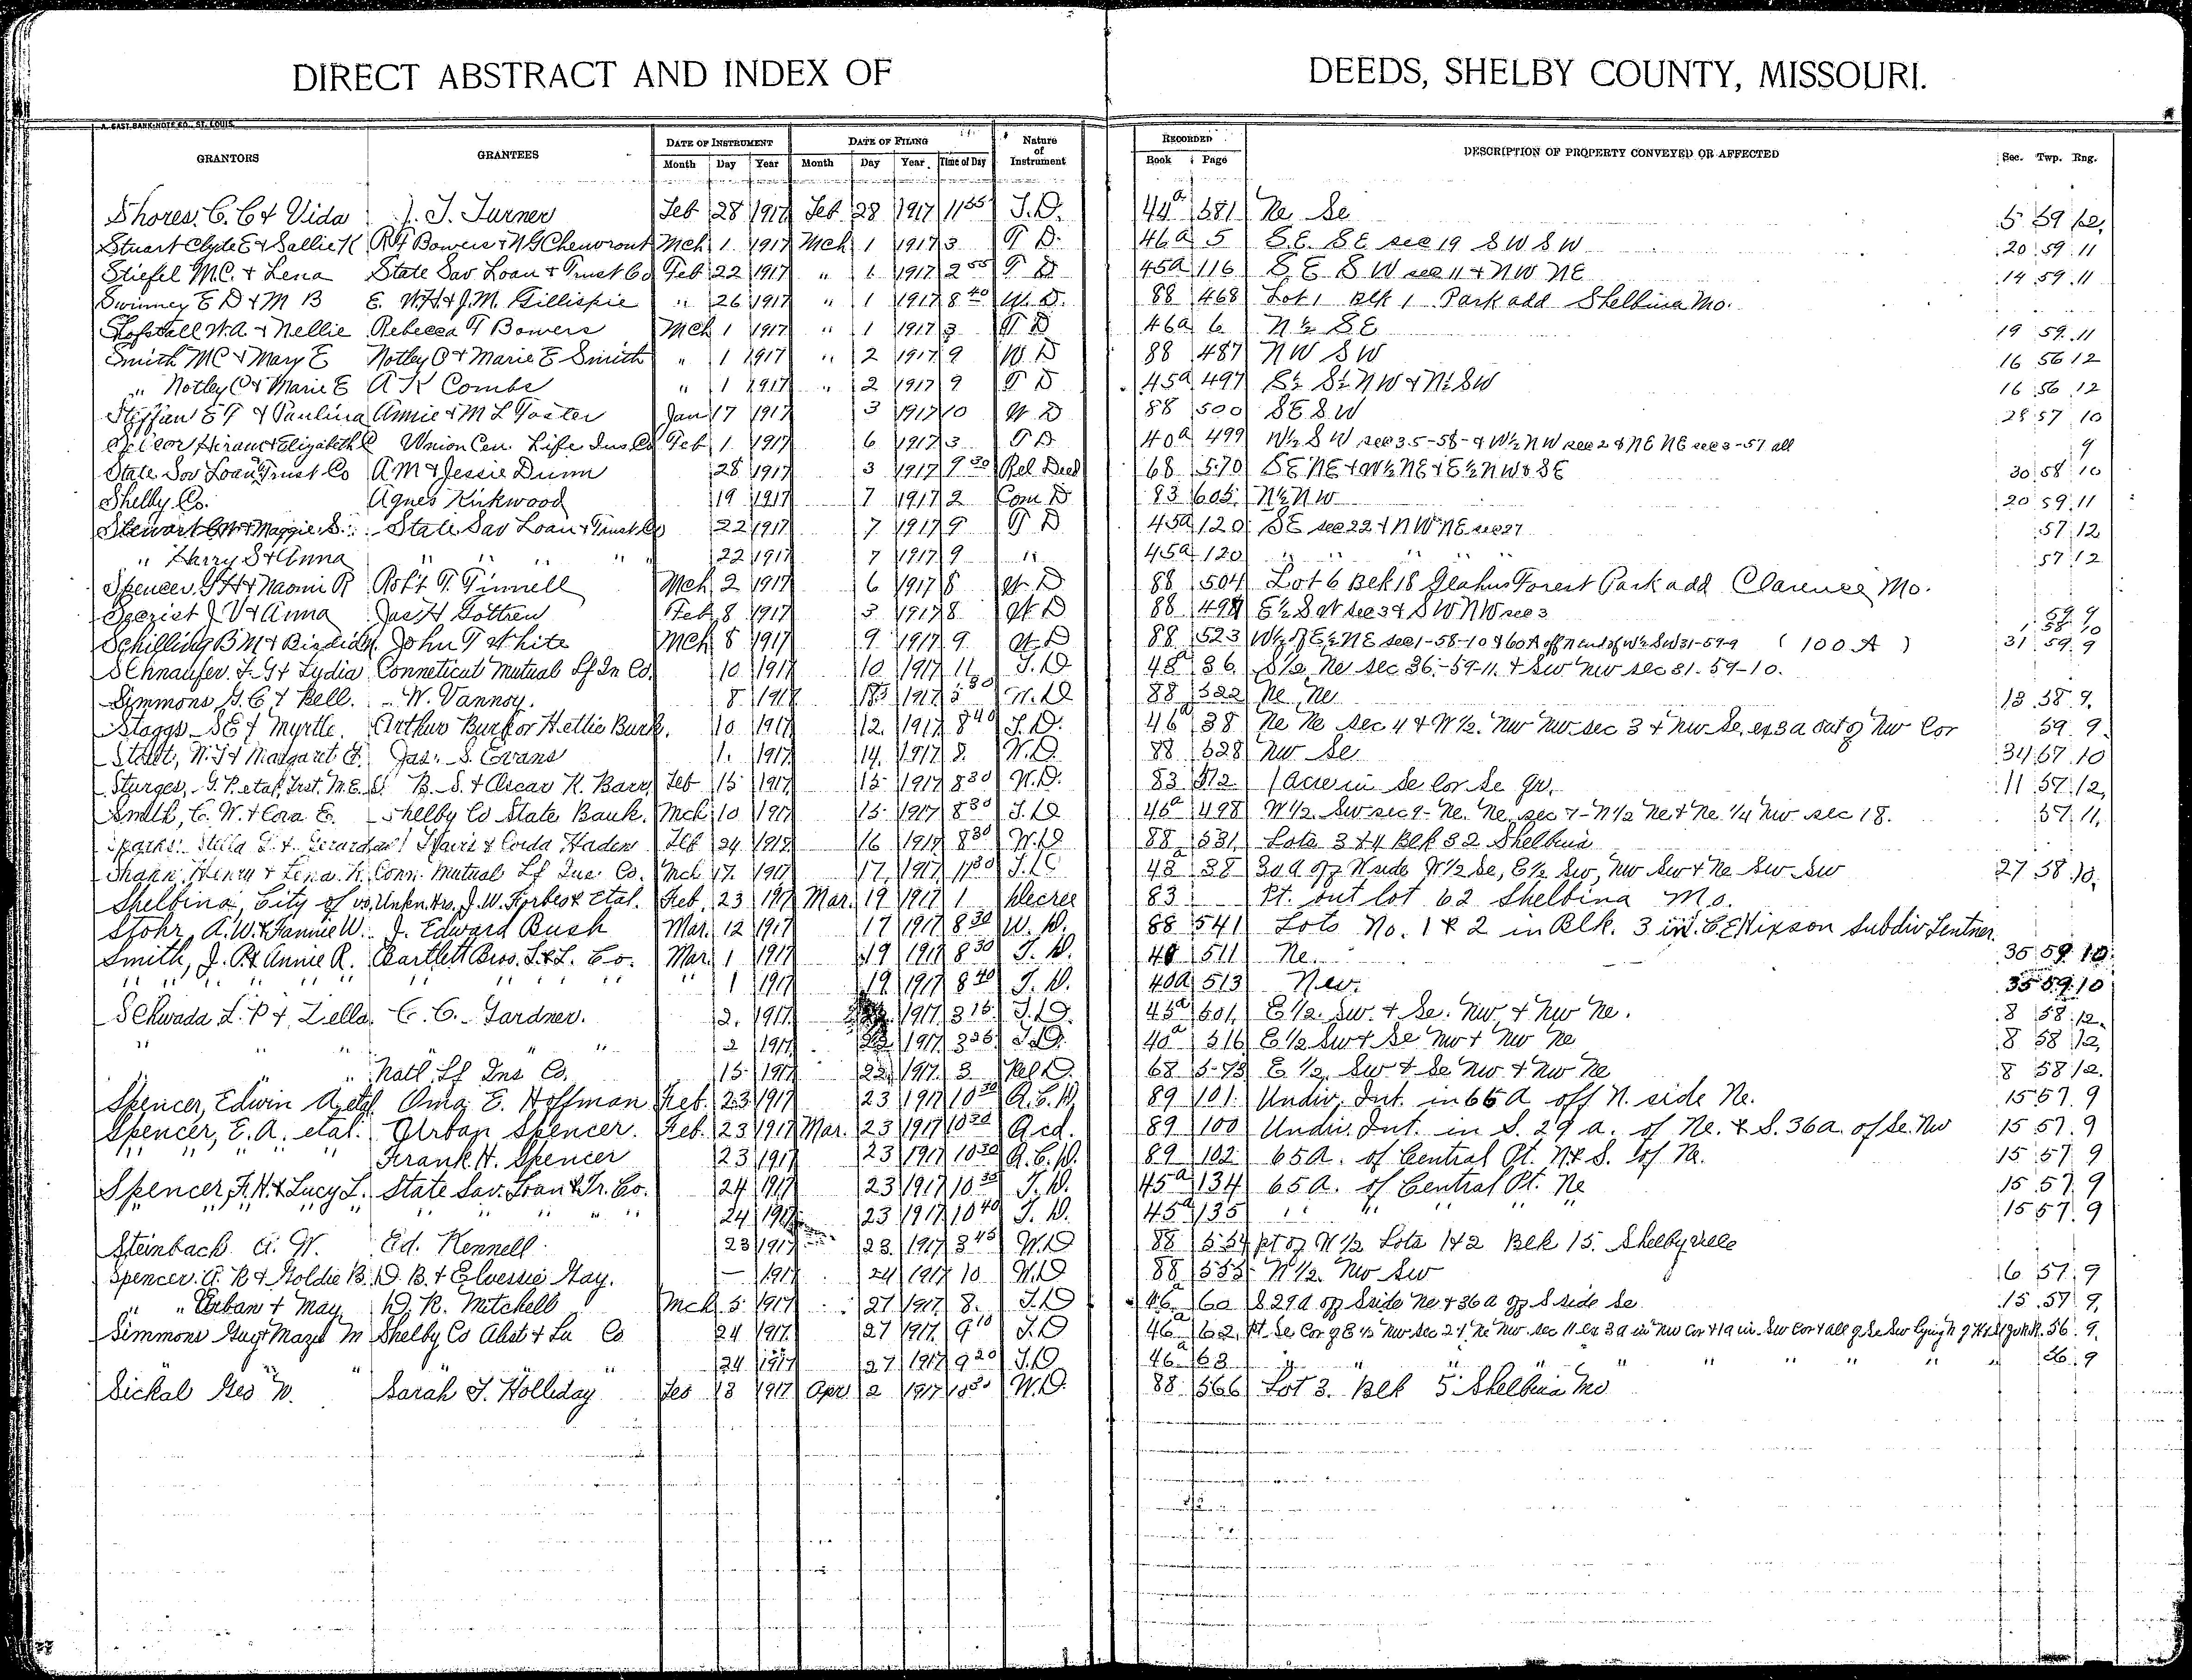 DIRECT ABSTRACT AND INDEX OF DEEDS, SHELBY COUNTY, MISSOURI.
GRANTORS GRANTEES DATE OF INSTRUMENT DATE OF FILING Nature of Instrument RECORDED DESCRIPTION OF PROPERTY CONVEYED OR AFFECTED Sec. Twp. Rng.
Month Day Year Month Day Year Time of Day Book Page
Shores, C. C & Vida J. T. Turner Feb 28 1917 Feb 28 1917 11 55 T.D. 44a 581 Ne Se 5 59 12
Stuart Clyde E & Sallie K R F Bowers & N G Chenvront Mch 1 1917 Mch 1 1917 3 T D. 46a 5 S.E. SE sec 19 SW SW 20 59 11
Stiefel M.C. & Lena State Sav Loan & Trust Co Feb 22 1917 " 1 1917 2 55 T D 45a 116 S E S W sec 11 & NW NE 14 59 11
Swinney E D & M B E. W.H & J.M. Gillispie " 26 1917 " 1 1917 8 40 W. D. 88 468 Lot 1 Blk 1 Park add Shelbina Mo.
W.A. & Nellie Rebecca T Bowers Mch 1 1917 " 1 1917 3 T D 46a 6 N ½ SE 19 59 11
Smith MC & Mary E Notley C & Marie E Smith " 1 1917 " 2 1917 9 W D 88 487 NW SW 16 56 12
" Notley C & Marie E A K Combs " 1 1917 " 2 1917 9 T D 45a 497 S½ S½ NW & N½ SW 16 56 12
Steffien E T & Paulina Annie & M L Foster Jan 17 1917 3 1917 10 W D 88 500 SE SW 28 57 10
Hiram & Elizabeth C Union Cen. Life Ins Co Feb 1 1917 6 1917 3 T D 40a 499 W½ S W sec 35-58- & W½ NW sec 2 & NE NE sec 3-57 all 9
State Sav Loan & Trust Co A M & Jessie Dunn 28 1917 3 1917 9 30 Rel Deed 68 570 SE NE & W½ NE & E½ NW & SE 30 58 10
Shelby Co. Agnes Kirkwood 19 1917 7 1917 2 Com D 83 605 N½ NW 20 59 11
Stewart & Maggie S. State Sav Loan & Trust Co 22 1917 7 1917 9 T D 45a 120 SE sec 22 & NW NE sec 27 57 12
" Harry S & Anna " " " " 22 1917 7 1917 9 " 45a 120 " " " " " 57 12
Spencer G H & Naomi R Robt T. Finnell Mch 2 1917 6 1917 8 W D 88 504 Lot 6 Blk 18 Forest Park add Clarence Mo.
J V & Anna Jas H Feb 8 1917 3 1917 8 W D 88 E½ S W sec 3 & S W NW sec 3 59 9
Schilling B M & Birdie M. John T White Mch 8 1917 9 1917 9 W D 88 523 W½ of E½ NE sec 1-58-10 & 60 A off N end of W½ SW 31-59-9 (100 A) 1 58 10 31 59 9
Schnaufer F. G & Lydia Conneticut Mutual Lf In Co. 10 1917 10 1917 11 T.D 48a 36 S ½ Ne sec 36-59-11 & Sw Nw sec 31-59-10.
Simmons G. C & Bell. W. Vannoy. 8 1917 1917 W.D 88 522 Ne Ne 13 58 9
Staggs S E & Myrtle. Arthur Burk or Hettie Burk. 10 1917 12 1917 8 40 T.D. 46a 38 Ne Ne Sec 4 & W ½ Nw Nw sec 3 & Nw Se, ex 3 a out of Nw Cor 59 9
Stout, W. T & Margaret E. Jas. S. Evans 1 1917 14 1917 8 W.D. 88 528 Nw Se 34 57 10
Sturges, G. P. etal, Trst. M.E. B. S. & Oscar K. Barr Feb 15 1917 15 1917 8 30 W.D. 83 512 1 Acre in Se Cor Se qr. 11 57 12
Smith, C. W. & Cora E. Shelby Co State Bank. Mch 10 1917 15 1917 8 30 T.D 45a 498 W ½ Sw sec 9 - Ne Ne sec 7 - N ½ Ne & Ne ¼ Nw sec 18. 57 11
Sparks Stella & Gerard Haden Feb 24 1917 16 1917 8 30 W.D 88 531 Lots 3 & 4 Blk 32 Shelbina
Shahn Henry & Lena K. Conn. Mutual Lf Ins. Co. Mch 17 1917 17 1917 11 30 T.D 48a 38 30 a off N side N ½ Se, E ½ Sw, Nw Sw & Ne Sw Sw 27 58 10
Shelbina, City of vs. Unkn. Hrs. J. W. Forbes & Etal. Feb. 23 1917 Mar. 19 1917 1 Decree 83 Pt. out lot 62 Shelbina Mo.
Stohr, A. W. & Fannie W. J. Edward Bush Mar. 12 1917 17 1917 8 30 W. D. 88 541 Lots No. 1 & 2 in Blk. 3 in C. E Hixson Subdiv Lentner.
Smith, J. R & Annie R. Bartlett Bros. L. & L. Co. Mar. 1 1917 19 1917 8 30 T. D. 40 511 Ne 35 59 10
" " " " " " " " 1 1917 19 1917 8 40 T. D. 40a 513 New. 35 59 10
Schwada L. P & Zella. C. C. Gardner. 2 1917 1917 3 15 T.D. 45a 501 E ½ Sw. & Se. Nw. & Nw Ne. 8 58 12
" " " " " 2 1917 22 1917 3 25 T.D. 40a 516 E ½ Sw & Se Nw & Nw Ne 8 58 12
" " " Natl Lf Ins Co. 15 1917 22 1917 3 Rel D. 68 573 E ½ Sw & Se Nw & Nw Ne 8 58 12
Spencer, Edwin A. etal Oma E. Hoffman Feb. 23 1917 23 1917 10 30 Q. C. D. 89 101 Undiv. Int. in 65 A off N. side Ne. 15 57 9
Spencer, E. A. etal. Urban Spencer. Feb. 23 1917 Mar. 23 1917 10 30 Qcd. 89 100 Undiv. Int. in S. 29 a. of Ne. & S. 36 a. of Se. Nw 15 57 9
" " " " Frank H. Spencer 23 1917 23 1917 10 30 Q. C. D. 89 102 65 A. of Central Pt. N & S. of Ne. 15 57 9
Spencer, F. H. & Lucy L. State Sav. Loan & Tr. Co. 24 1917 23 1917 10 35 T. D. 45a 134 65 A. of Central Pt. Ne 15 57 9
" " " " " " " 24 1917 23 1917 10 40 T. D. 45a 135 " " " " 15 57 9
Steinback A. W. Ed. Kennell 23 1917 23 1917 3 45 W.D 88 554 pt of N ½ Lots 1 & 2 Blk 15. Shelbyville
Spencer. A. R & Goldie B. D. B. & Elvessie Gay. — 1917 24 1917 10 W.D 88 555 N ½ Nw Sw 16 57 9
" " Urban & May W. R. Mitchell Mch 5 1917 27 1917 8. T.D 46a 60 S 29 a off S side Ne & 36 a off S side Se 15 57 9
Simmons Guy & Mazel M Shelby Co Abst & Ln Co 24 1917 27 1917 9 10 T.D 46a 62 Pt. Se Cor of E ½ Nw Sec 2 & Ne Nw sec 11 ex 3 a in Nw Cor & 1 a in Sw Cor & all of Se Sw lying N of H & St Jo R.R. 56 9
" " 24 1917 27 1917 9 20 T.D 46a 63 " " " " " " " " " " 56 9
Sickal Geo W. Sarah F. Holliday Feb 13 1917 Apr 2 1917 10 30 W.D. 88 566 Lot 3. Blk 5 Shelbina Mo